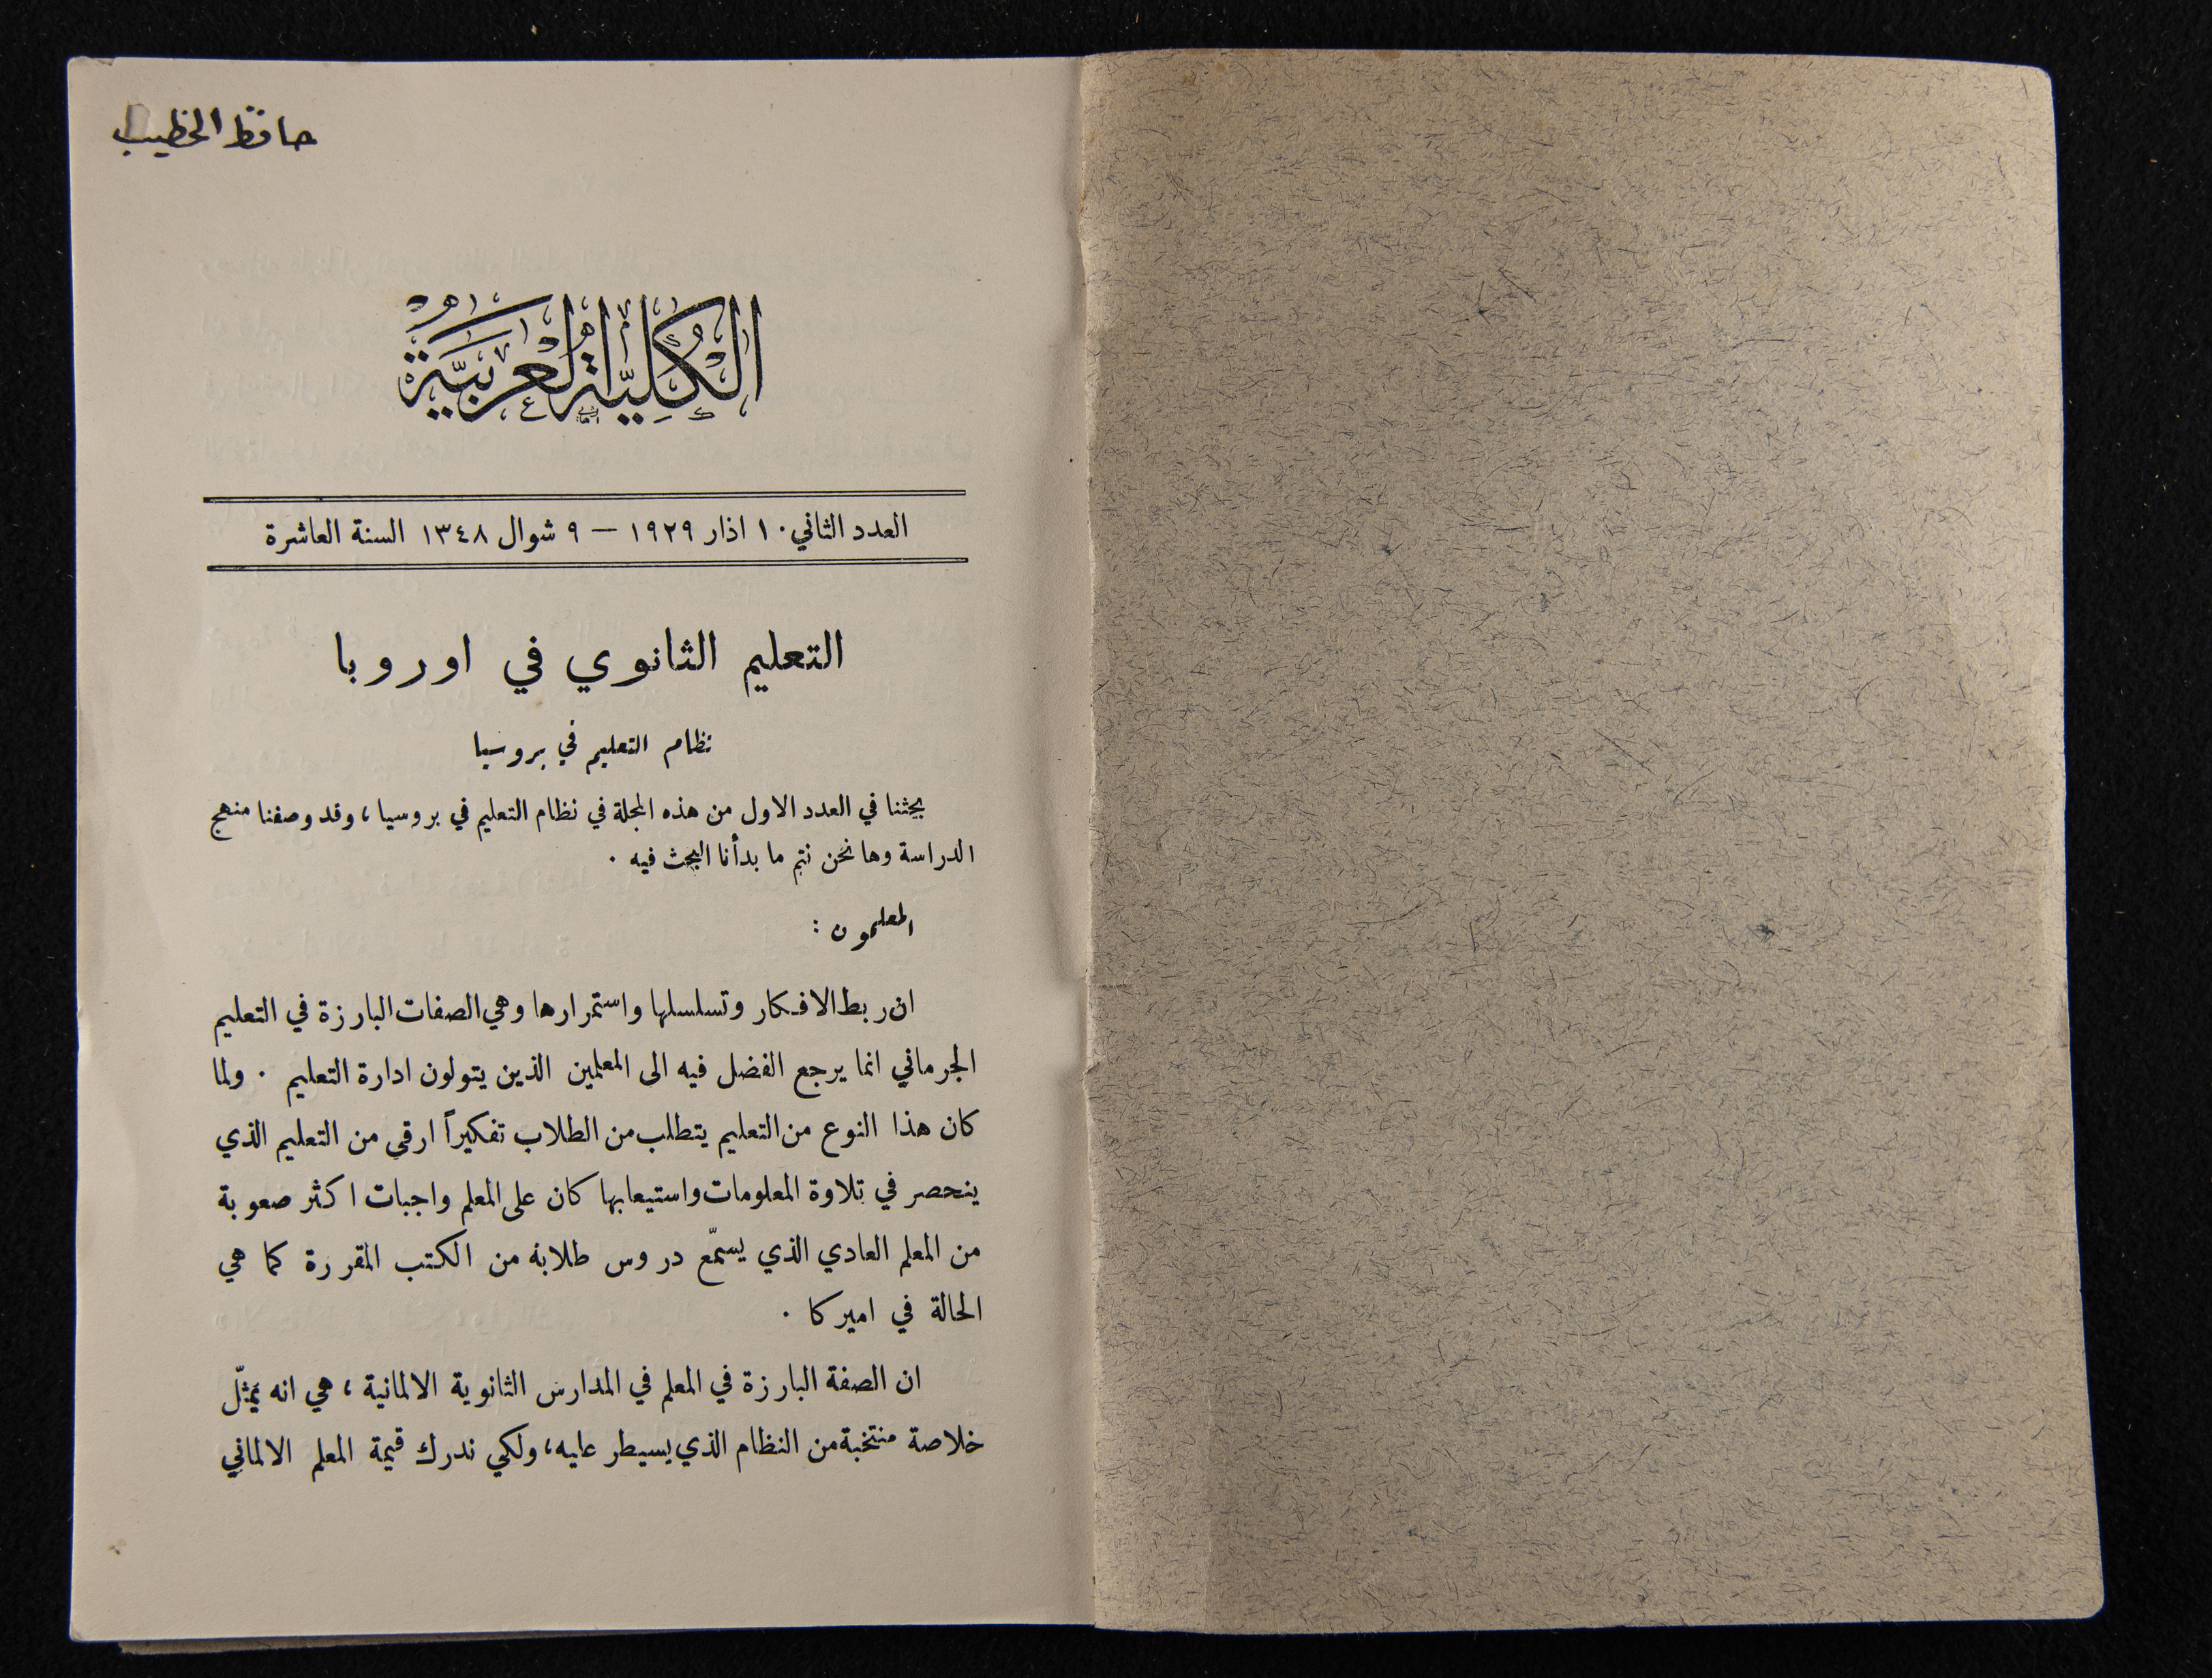 حافظ الخطيب
الكُلِّيَّةُ العَرَبِيَّةُ
العدد الثاني ١٠ اذار ١٩٢٩ — ٩ شوال ١٣٤٨ السنة العاشرة
التعليم الثانوي في اوروبا
نظام التعليم في بروسيا
بحثنا في العدد الاول من هذه المجلة في نظام التعليم في بروسيا، وقد وصفنا منهج
الدراسة وها نحن نتم ما بدأنا البحث فيه .
المعلمون :
ان ربط الافكار وتسلسلها واستمرارها وهي الصفات البارزة في التعليم
الجرماني انما يرجع الفضل فيه الى المعلمين الذين يتولون ادارة التعليم . ولما
كان هذا النوع من التعليم يتطلب من الطلاب تفكيراً ارقى من التعليم الذي
ينحصر في تلاوة المعلومات واستيعابها كان على المعلم واجبات اكثر صعوبة
من المعلم العادي الذي يسمّع دروس طلابه من الكتب المقررة كما هي
الحالة في اميركا .
ان الصفة البارزة في المعلم في المدارس الثانوية الالمانية ، هي انه يمثّل
خلاصة منتخبة من النظام الذي يسيطر عليه، ولكي ندرك قيمة المعلم الالماني